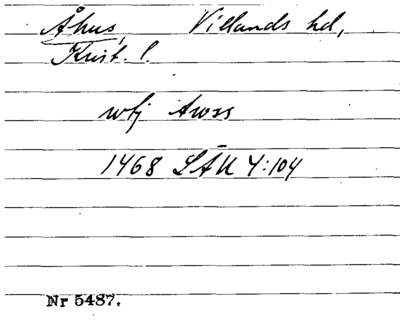 Åhus, Villands hd,
Krist. l.
wtj Awss
1468 LÄU 4:104
Nr 5487.